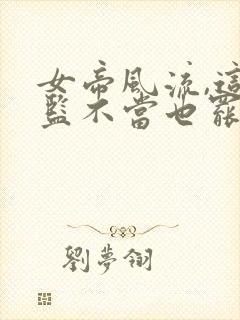 女帝風流,這
藍不當也罷
劉夢翎